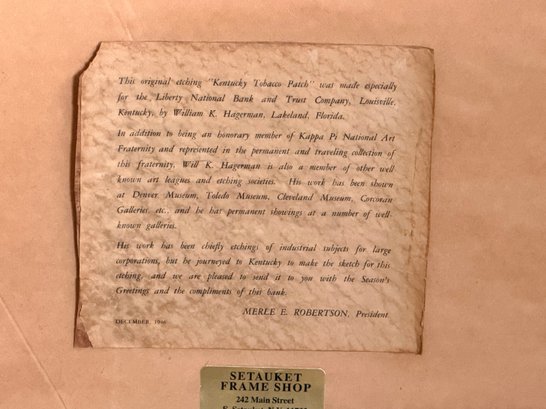 This original etching "Kentucky Tobacco Patch" was made especially
for the Liberty National Bank and Trust Company, Louisville,
Kentucky, by William K. Hagerman, Lakeland, Florida.
In addition to being an honorary member of Kappa Pi National Art
Fraternity and represented in the permanent and traveling collection of
this fraternity, Will K. Hagerman is also a member of other well
known art leagues and etching societies. His work has been shown
at Denver Museum, Toledo Museum, Cleveland Museum, Corcoran
Galleries etc., and he has permanent showings at a number of well-
known galleries.
His work has been chiefly etchings of industrial subjects for large
corporations, but he journeyed to Kentucky to make the sketch for this
etching, and we are pleased to send it to you with the Season's
Greetings and the compliments of this bank.
MERLE E. ROBERTSON, President
DECEMBER, 1946
SETAUKET
FRAME SHOP
242 Main Street
E. Setauket, N.Y.